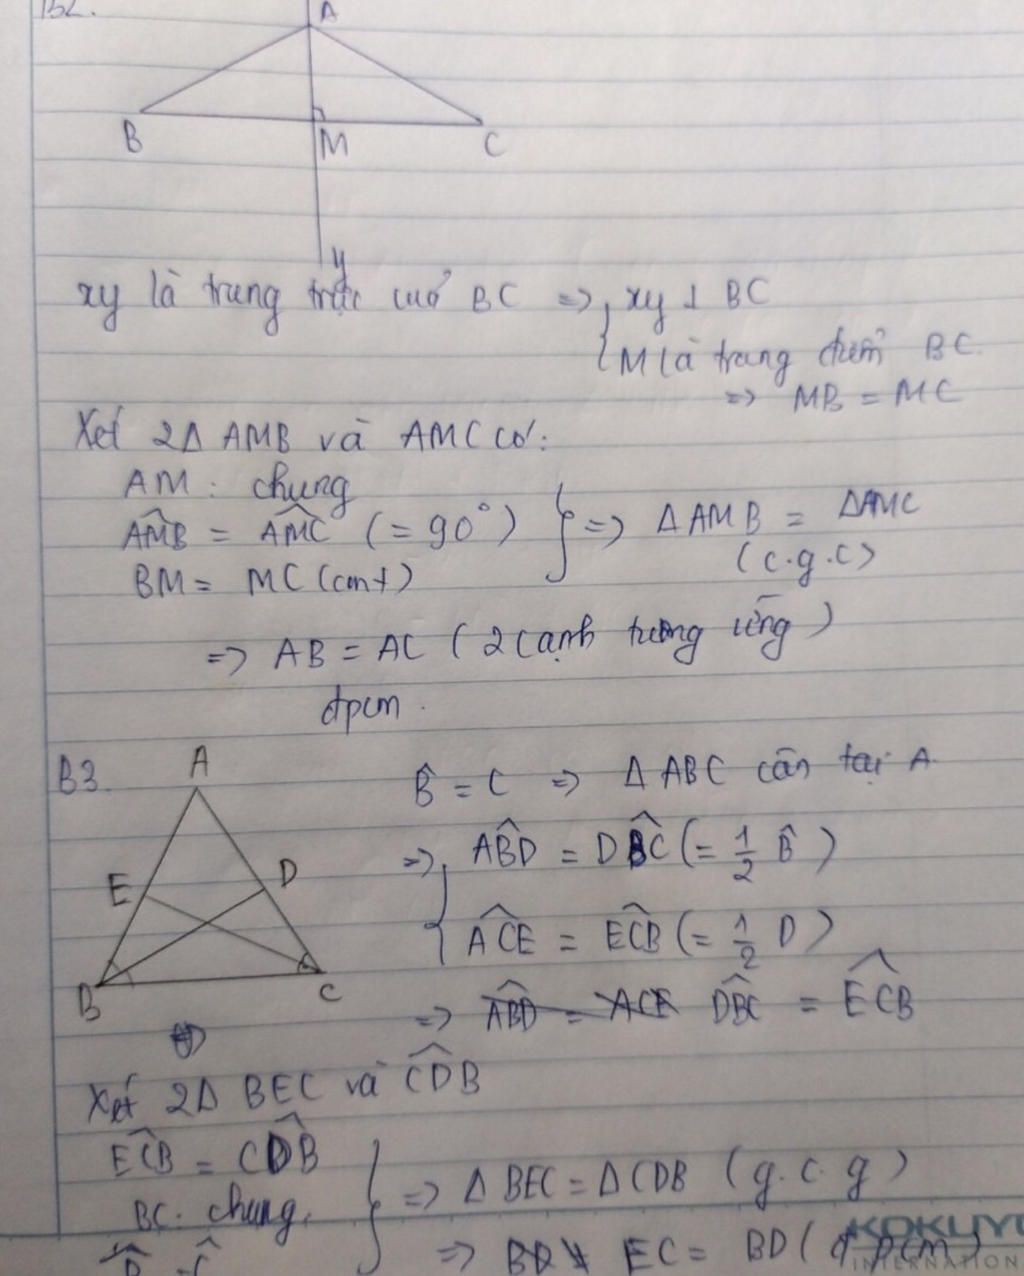 B2.
A
B
M
C
y
xy là trung trực cuả BC => { xy ⊥ BC
M là trung điểm BC.
=> MB = MC
Xét 2Δ AMB và AMC có:
AM : chung
AMB̂ = AMĈ (= 90°) } => Δ AMB = ΔAMC
BM = MC (cmt)
(c.g.c)
=> AB = AC ( 2 cạnh tương ứng )
đpcm.
B3.
A
E
D
B
C
B̂ = C => Δ ABC cân tại A.
=> { AB̂D = DB̂C (= 1/2 B̂ )
AĈE = EĈB (= 1/2 D )
=> AB̂D = ACE DB̂C = EĈB
Xét 2Δ BEC và CD̂B
EĈB = CD̂B
BC. chung. } => Δ BEC = Δ CDB (g.c.g)
B̂ = Ĉ
=> EC = BD ( đpcm )
KOKUYO
INTERNATION